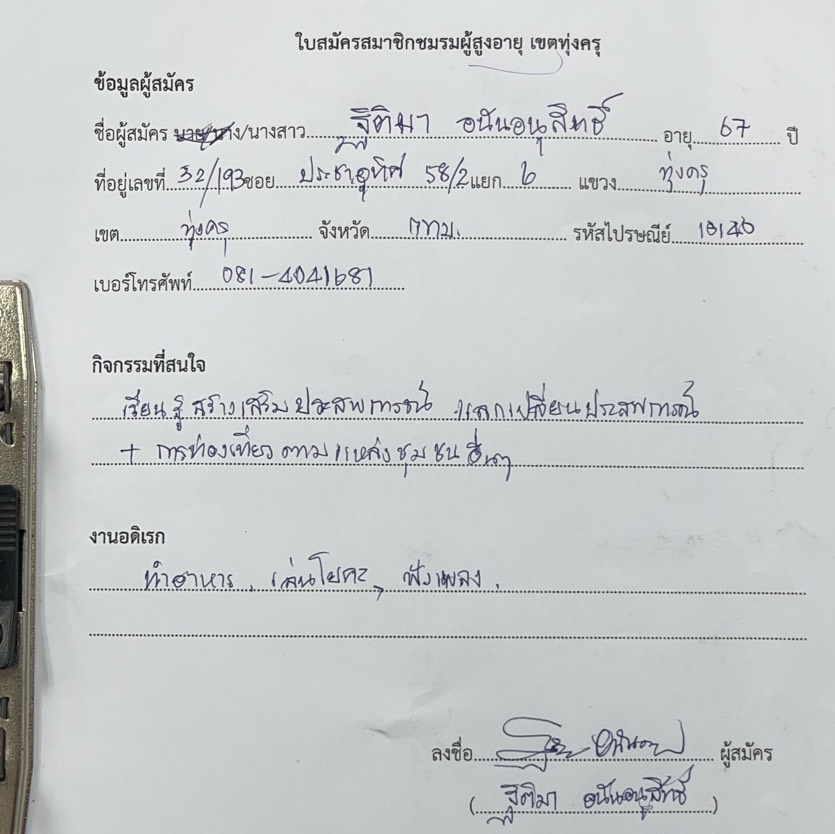 ใบสมัครสมาชิกชมรมผู้สูงอายุ เขตทุ่งครุ
ข้อมูลผู้สมัคร
ชื่อผู้สมัคร นาย/นาง/นางสาว ฐิติมา อนันอนุสิทธิ์ อายุ 67 ปี
ที่อยู่เลขที่ 32/193 ซอย ประชาอุทิศ 58/2 แยก 6 แขวง ทุ่งครุ
เขต ทุ่งครุ จังหวัด กทม. รหัสไปรษณีย์ 10140
เบอร์โทรศัพท์ 081-4041681
กิจกรรมที่สนใจ
เรียนรู้ สร้างเสริมประสพการณ์ แลกเปลี่ยนประสพการณ์
+ การท่องเที่ยวตามแหล่งชุมชนอื่นๆ
งานอดิเรก
ทำอาหาร, เล่นโยคะ, ฟังเพลง.
ลงชื่อ ผู้สมัคร
(ฐิติมา อนันอนุสิทธิ์)